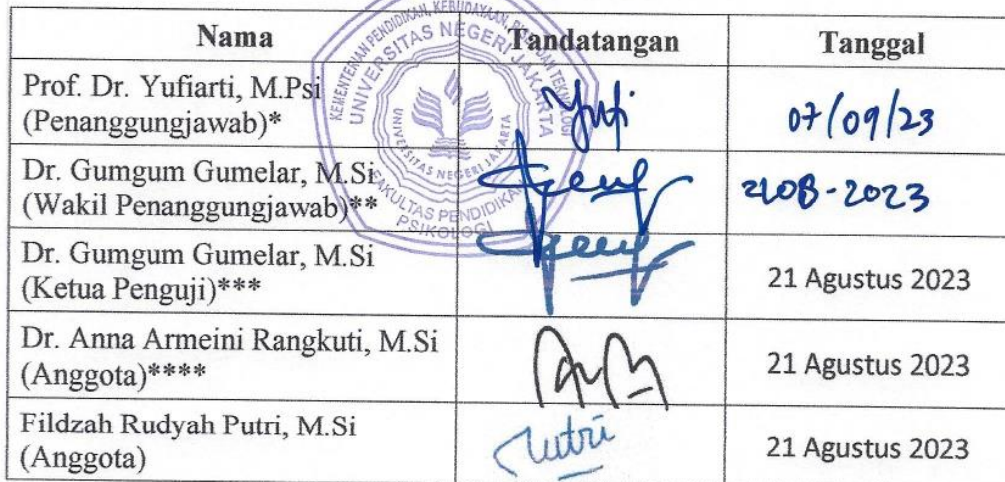 Nama Tandatangan Tanggal
Prof. Dr. Yufiarti, M.Psi
(Penanggungjawab)*
07/09/23
Dr. Gumgum Gumelar, M.Si
(Wakil Penanggungjawab)**
2108-2023
Dr. Gumgum Gumelar, M.Si
(Ketua Penguji)***
21 Agustus 2023
Dr. Anna Armeini Rangkuti, M.Si
(Anggota)****
21 Agustus 2023
Fildzah Rudyah Putri, M.Si
(Anggota)
Putri
21 Agustus 2023
KEMENTERIAN PENDIDIKAN, KEBUDAYAAN, RISET, DAN TEKNOLOGI
UNIVERSITAS NEGERI JAKARTA
UNIVERSITAS NEGERI JAKARTA
FAKULTAS PENDIDIKAN
PSIKOLOGI